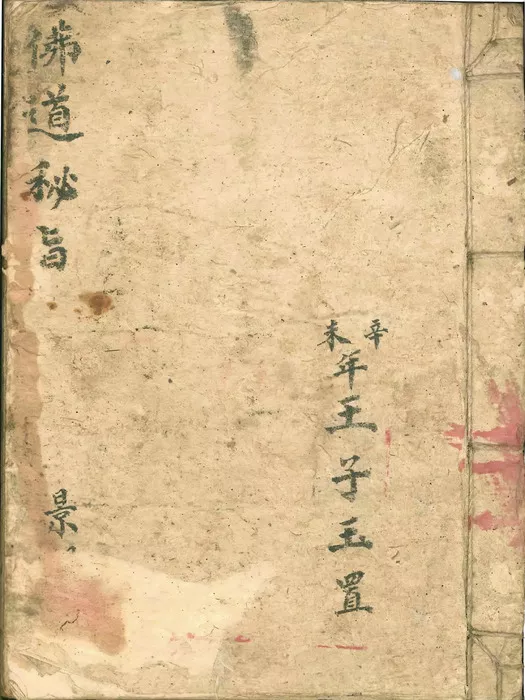 辛未年王子玉置
佛道秘旨
景